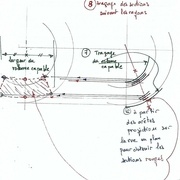 ⑧ traçage des sections
suivant les rayons
⑨ Traçage
du volume
capable
largeur du
volume capable
⑩ à partir
des arêtes
projection sur
la vue en plan
pour obtenir les
sections rouges